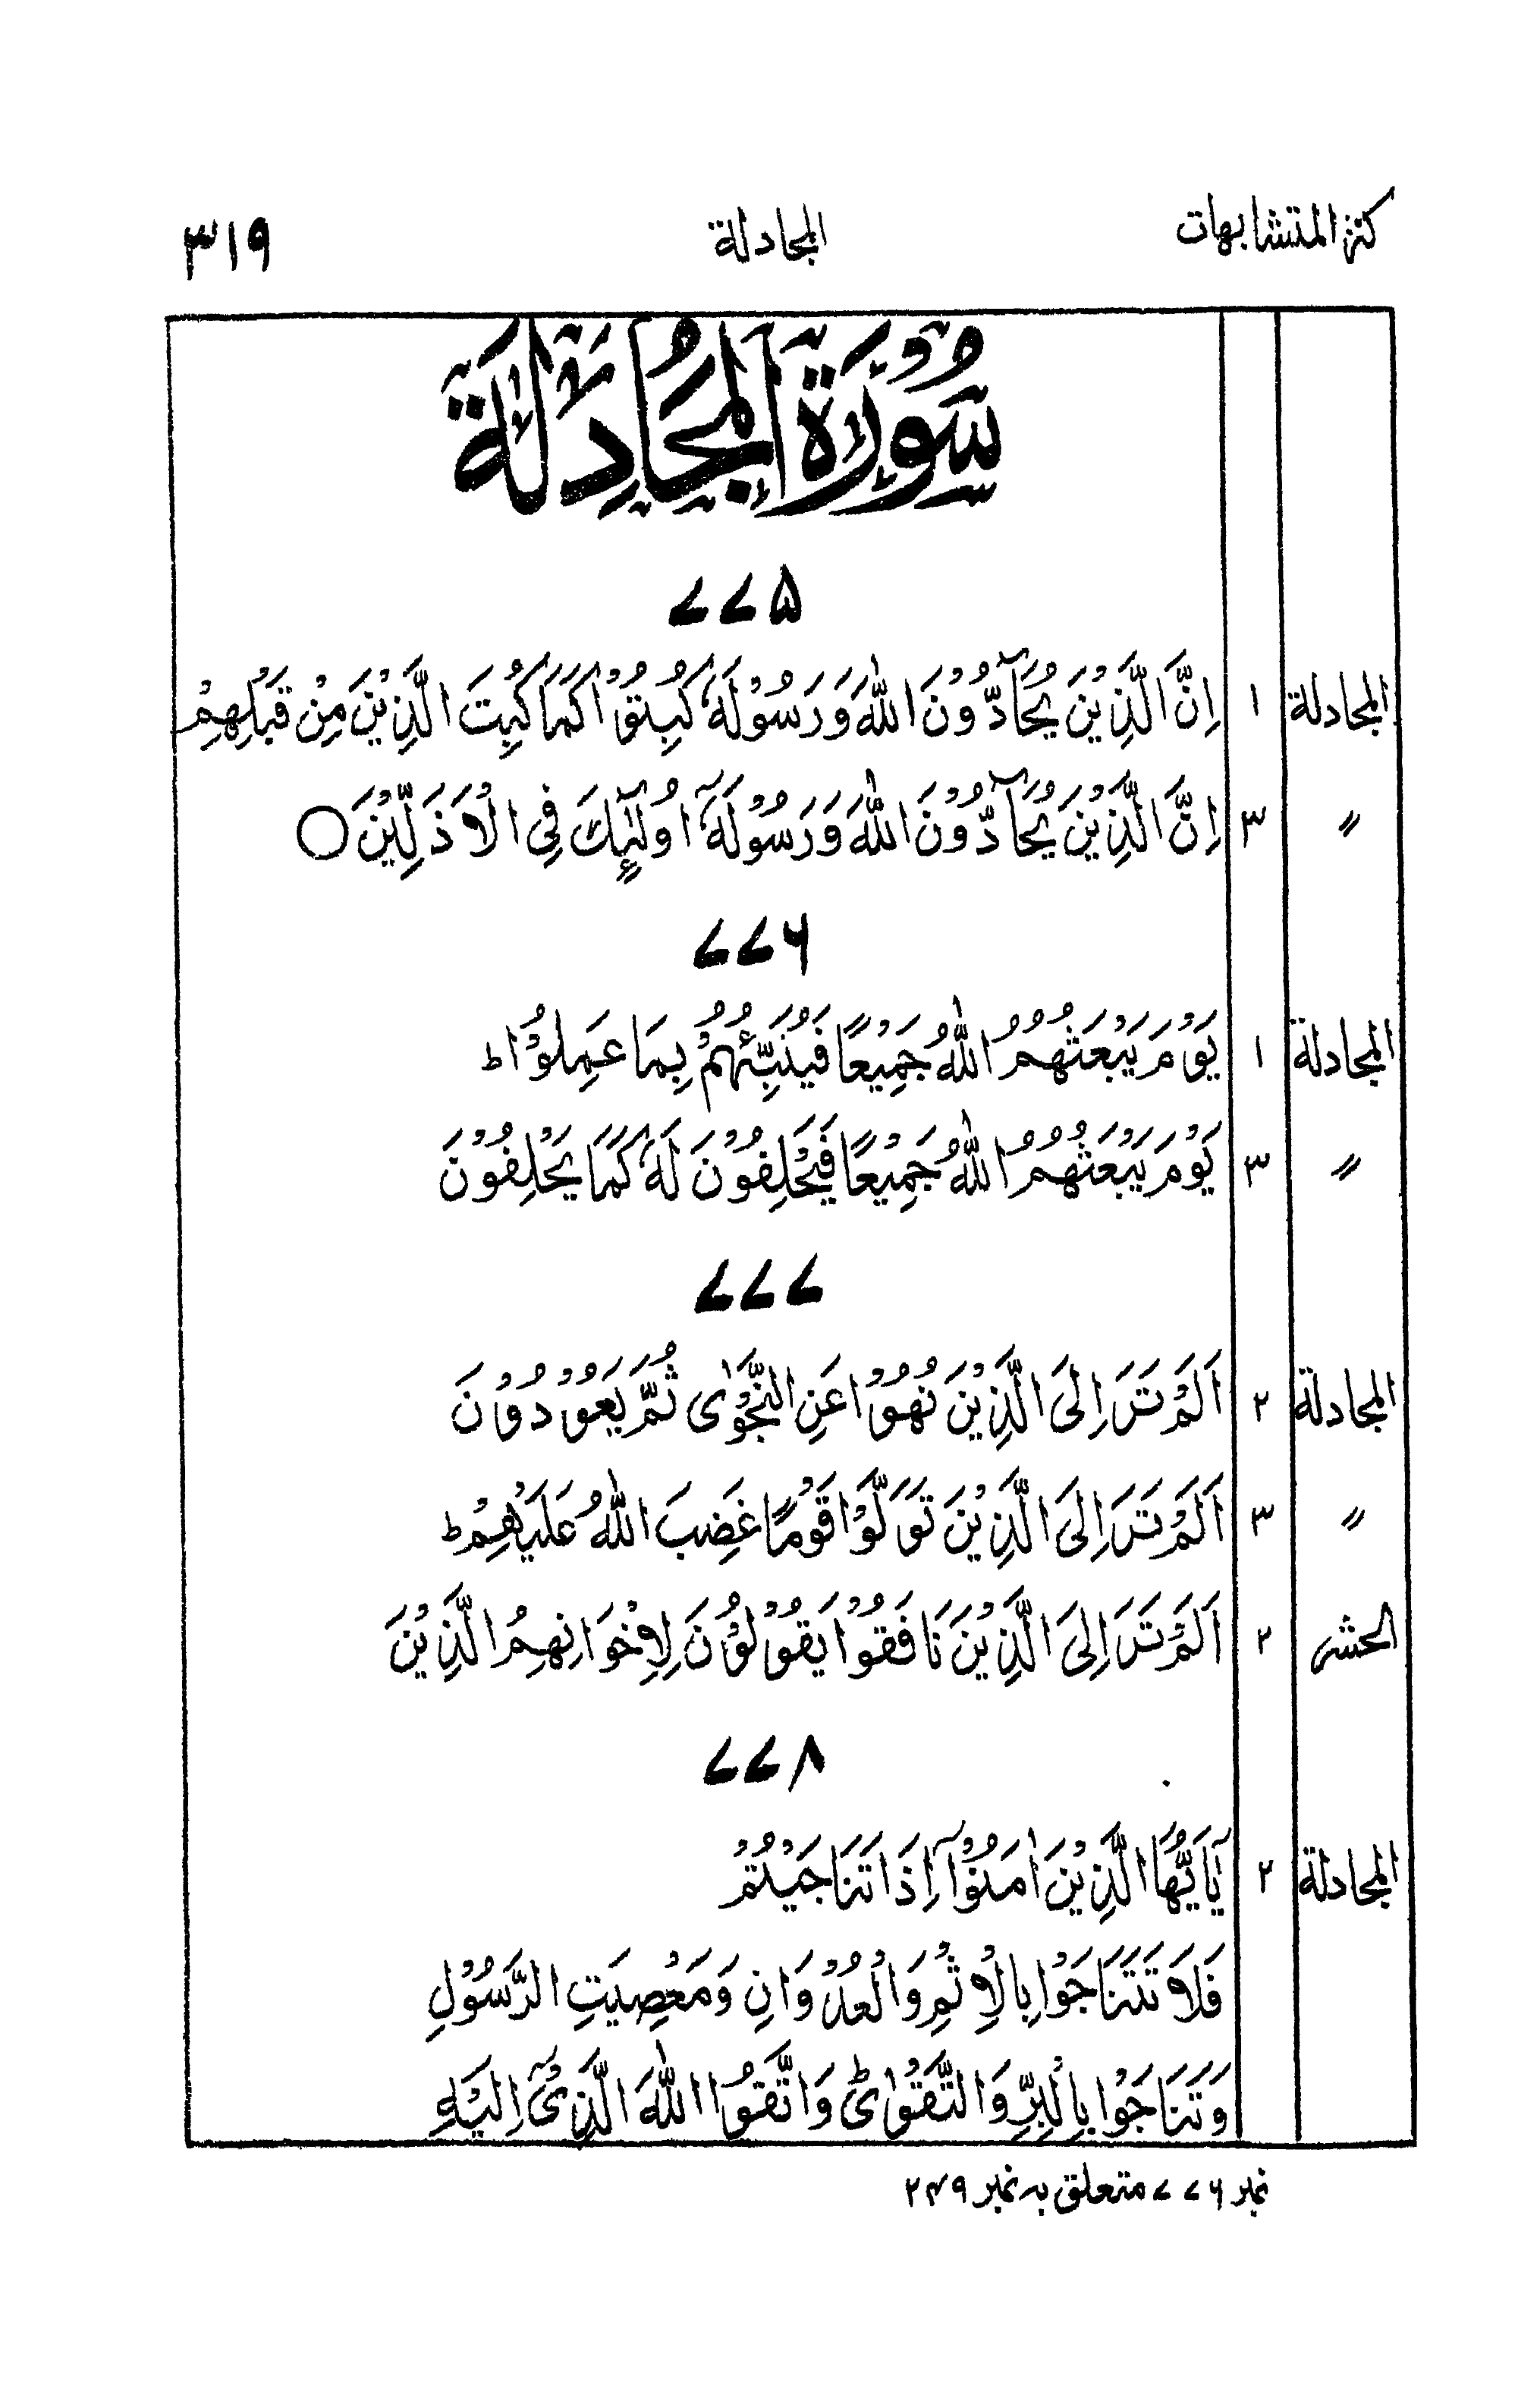 كنز المتشابهات المجادلة ۳۱۹
سُوْرَةُ الْمُجَادِلَةِ
۷۷۵
المجادلة ۱ اِنَّ الَّذِيْنَ يُحَآدُّوْنَ اللّٰهَ وَرَسُوْلَهٗ كُبِتُوْا كَمَا كُبِتَ الَّذِيْنَ مِنْ قَبْلِهِمْ
〃 ۳ اِنَّ الَّذِيْنَ يُحَآدُّوْنَ اللّٰهَ وَرَسُوْلَهٗٓ اُولٰٓئِكَ فِی الْاَذَلِّيْنَ ○
۷۷۶
المجادلة ۱ يَوْمَ يَبْعَثُهُمُ اللّٰهُ جَمِيْعًا فَيُنَبِّئُهُمْ بِمَا عَمِلُوْا ؕ
〃 ۳ يَوْمَ يَبْعَثُهُمُ اللّٰهُ جَمِيْعًا فَيَحْلِفُوْنَ لَهٗ كَمَا يَحْلِفُوْنَ
۷۷۷
المجادلة ۲ اَلَمْ تَرَ اِلَی الَّذِيْنَ نُهُوْا عَنِ النَّجْوٰی ثُمَّ يَعُوْدُوْنَ
〃 ۳ اَلَمْ تَرَ اِلَی الَّذِيْنَ تَوَلَّوْا قَوْمًا غَضِبَ اللّٰهُ عَلَيْهِمْ ؕ
الحشر ۲ اَلَمْ تَرَ اِلَی الَّذِيْنَ نَافَقُوْا يَقُوْلُوْنَ لِاِخْوَانِهِمُ الَّذِيْنَ
۷۷۸
المجادلة ۲ يٰٓاَيُّهَا الَّذِيْنَ اٰمَنُوْٓا اِذَا تَنَاجَيْتُمْ
فَلَا تَتَنَاجَوْا بِالْاِثْمِ وَالْعُدْوَانِ وَمَعْصِيَتِ الرَّسُوْلِ
وَتَنَاجَوْا بِالْبِرِّ وَالتَّقْوٰی ؕ وَاتَّقُوا اللّٰهَ الَّذِیْٓ اِلَيْهِ
نمبر ۷۷۶ متعلق بہ نمبر ۲۴۹